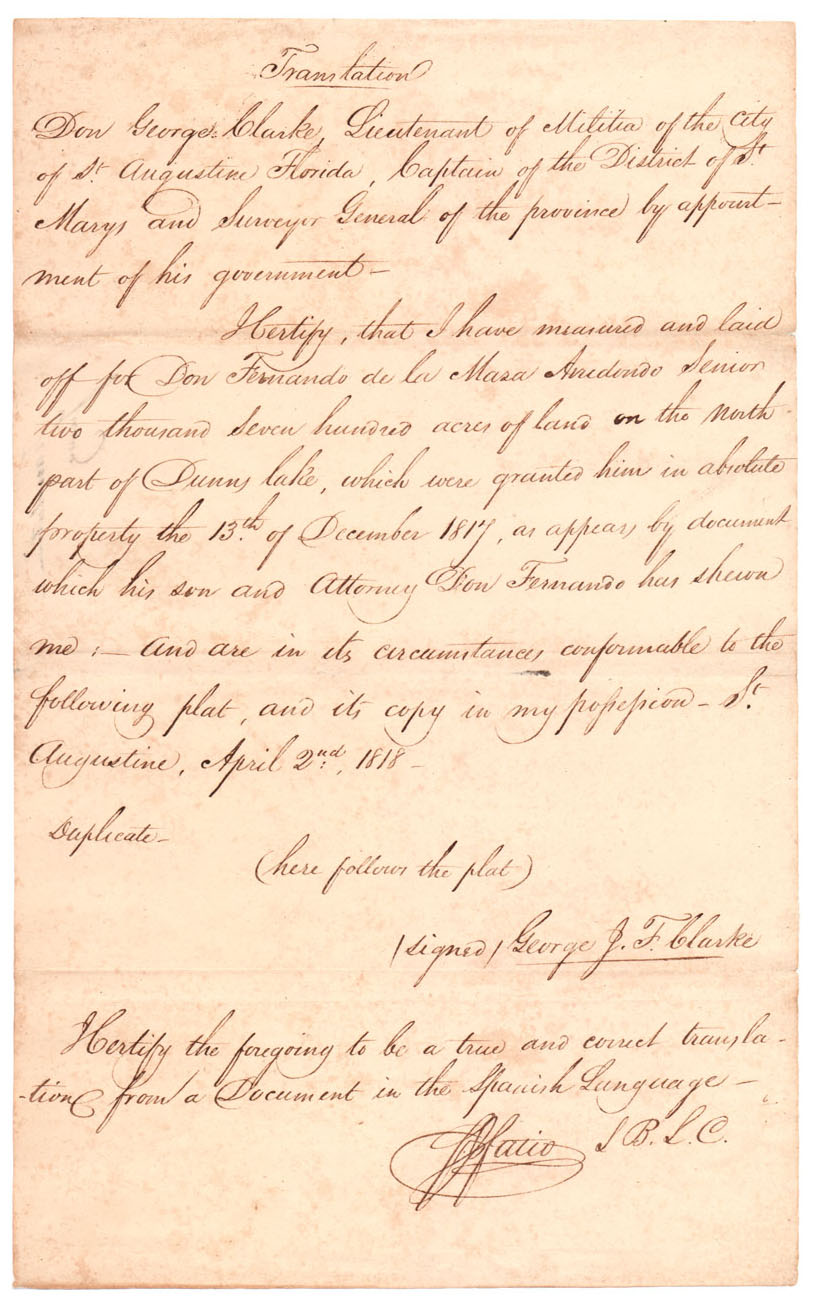 Translation
Don George Clarke, Lieutenant of Militia of the City
of St. Augustine Florida, Captain of the District of St.
Marys and Surveyor General of the province by appoint-
ment of his government-
I Certify, that I have measured and laid
off for Don Fernando de la Maza Arredondo Senior
two thousand Seven hundred acres of land on the North
part of Dunns lake, which were granted him in absolute
property the 13th. of December 1817, as appears by document
which his son and Attorney Don Fernando has shewn
me; - And are in its circumstances conformable to the
following plat, and its copy in my possession - St.
Augustine, April 2nd., 1818 -
Duplicate-
(here follows the plat)
(signed) George J. F. Clarke
I Certify the foregoing to be a true and correct transla-
-tion from a Document in the Spanish Language -
Fatio S B. L. C.